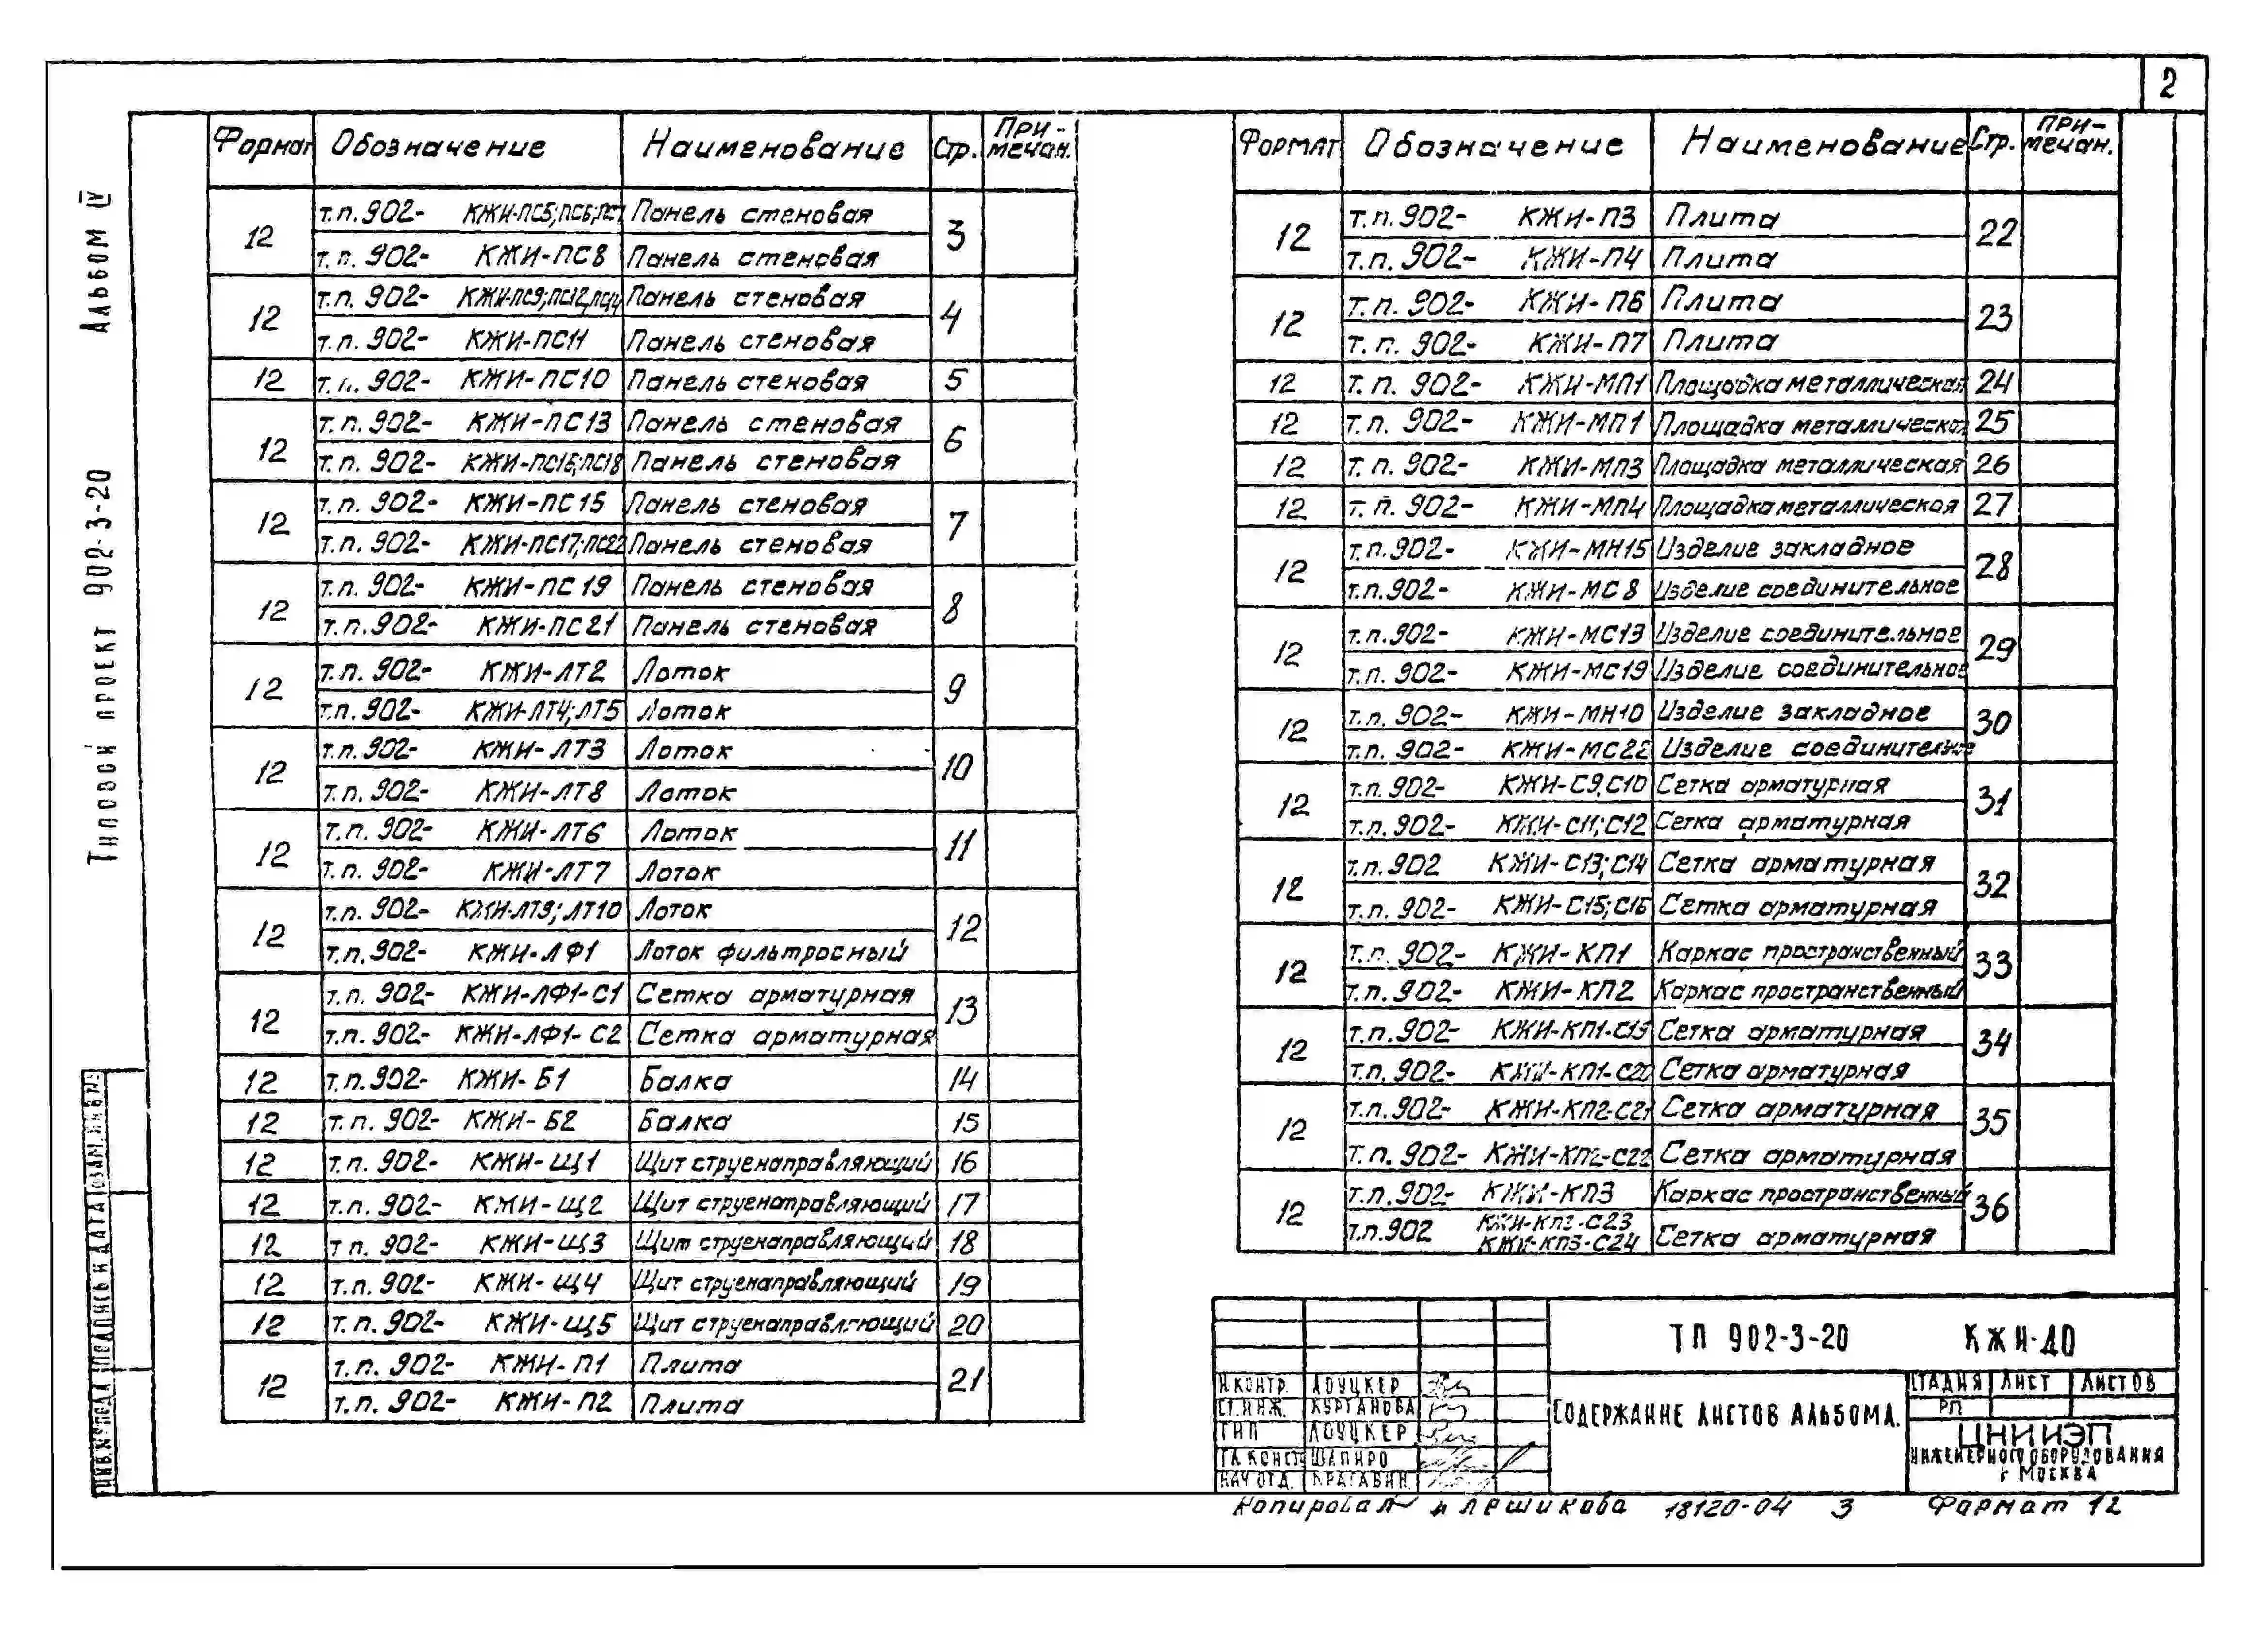 2
Альбом IV
Типовой проект 902-3-20
Формат Обозначение Наименование Стр. При-мечан.
12 т.п. 902- КЖИ-ПС5; ПС6; ПС7 Панель стеновая 3
т.п. 902- КЖИ-ПС8 Панель стеновая
12 т.п. 902- КЖИ-ПС9; ПС12, ПС14 Панель стеновая 4
т.п. 902- КЖИ-ПС11 Панель стеновая
12 т.п. 902- КЖИ-ПС10 Панель стеновая 5
12 т.п. 902- КЖИ-ПС13 Панель стеновая 6
т.п. 902- КЖИ-ПС16; ПС18 Панель стеновая
12 т.п. 902- КЖИ-ПС15 Панель стеновая 7
т.п. 902- КЖИ-ПС17; ПС22 Панель стеновая
12 т.п. 902- КЖИ-ПС19 Панель стеновая 8
т.п. 902- КЖИ-ПС21 Панель стеновая
12 т.п. 902- КЖИ-ЛТ2 Лоток 9
т.п. 902- КЖИ-ЛТ4; ЛТ5 Лоток
12 т.п. 902- КЖИ-ЛТ3 Лоток 10
т.п. 902- КЖИ-ЛТ8 Лоток
12 т.п. 902- КЖИ-ЛТ6 Лоток 11
т.п. 902- КЖИ-ЛТ7 Лоток
12 т.п. 902- КЖИ-ЛТ9; ЛТ10 Лоток 12
т.п. 902- КЖИ-ЛФ1 Лоток фильтросный
12 т.п. 902- КЖИ-ЛФ1-С1 Сетка арматурная 13
т.п. 902- КЖИ-ЛФ1-С2 Сетка арматурная
12 т.п. 902- КЖИ-Б1 Балка 14
12 т.п. 902- КЖИ-Б2 Балка 15
12 т.п. 902- КЖИ-Щ1 Щит струенаправляющий 16
12 т.п. 902- КЖИ-Щ2 Щит струенаправляющий 17
12 т.п. 902- КЖИ-Щ3 Щит струенаправляющий 18
12 т.п. 902- КЖИ-Щ4 Щит струенаправляющий 19
12 т.п. 902- КЖИ-Щ5 Щит струенаправляющий 20
12 т.п. 902- КЖИ-П1 Плита 21
т.п. 902- КЖИ-П2 Плита
Формат Обозначение Наименование Стр. При-мечан.
12 т.п. 902- КЖИ-П3 Плита 22
т.п. 902- КЖИ-П4 Плита
12 т.п. 902- КЖИ-П6 Плита 23
т.п. 902- КЖИ-П7 Плита
12 т.п. 902- КЖИ-МП1 Площадка металлическая 24
12 т.п. 902- КЖИ-МП1 Площадка металлическая 25
12 т.п. 902- КЖИ-МП3 Площадка металлическая 26
12 т.п. 902- КЖИ-МП4 Площадка металлическая 27
12 т.п. 902- КЖИ-МН15 Изделие закладное 28
т.п. 902- КЖИ-МС8 Изделие соединительное
12 т.п. 902- КЖИ-МС13 Изделие соединительное 29
т.п. 902- КЖИ-МС19 Изделие соединительное
12 т.п. 902- КЖИ-МН10 Изделие закладное 30
т.п. 902- КЖИ-МС22 Изделие соединительное
12 т.п. 902- КЖИ-С9, С10 Сетка арматурная 31
т.п. 902- КЖИ-С11; С12 Сетка арматурная
12 т.п. 902 КЖИ-С13; С14 Сетка арматурная 32
т.п. 902- КЖИ-С15; С16 Сетка арматурная
12 т.п. 902- КЖИ-КП1 Каркас пространственный 33
т.п. 902- КЖИ-КП2 Каркас пространственный
12 т.п. 902- КЖИ-КП1-С19 Сетка арматурная 34
т.п. 902- КЖИ-КП1-С20 Сетка арматурная
12 т.п. 902- КЖИ-КП2-С21 Сетка арматурная 35
т.п. 902- КЖИ-КП2-С22 Сетка арматурная
12 т.п. 902- КЖИ-КП3 Каркас пространственный 36
т.п. 902 КЖИ-КП3-С23
КЖИ-КП3-С24 Сетка арматурная
ТП 902-3-20 КЖИ-ДО
Н.контр. Лоуцкер
Ст.инж. Курганова
ГИП Лоуцкер
Гл.конст. Шапиро
Нач.отд.
Содержание листов альбома.
Стадия Лист Листов
РП
ЦНИИЭП
инженерного оборудования
г Москва
Инв.№ подл. Подпись и дата Взам.инв.№
Копировал Лешикова 18120-04 3 Формат 12